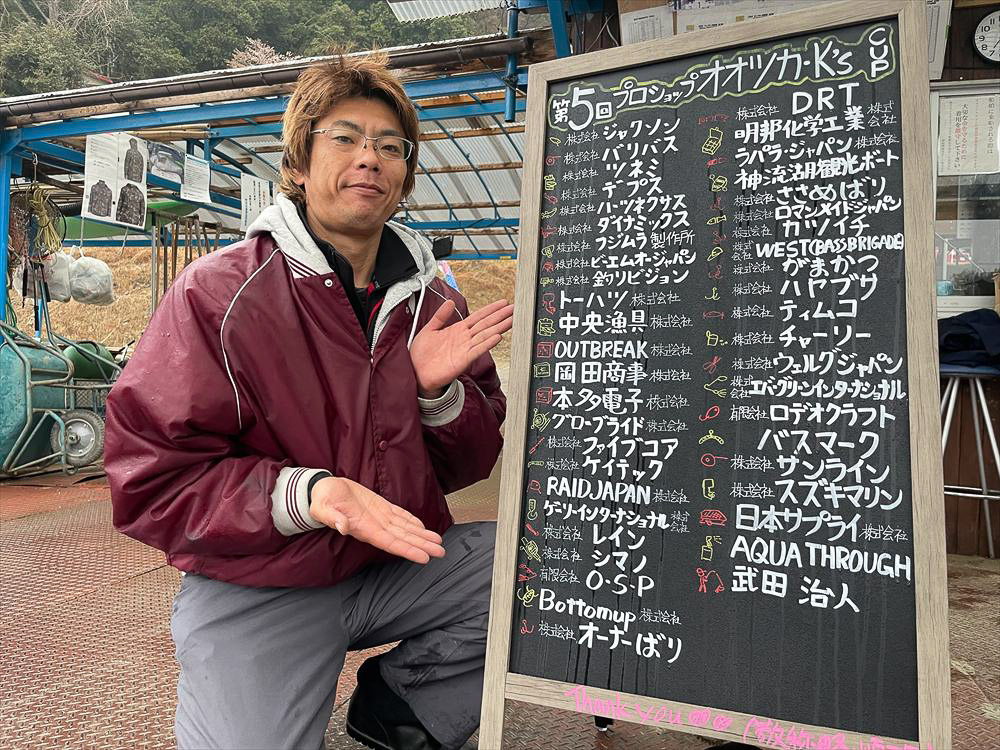 第5回 プロショップオオツカ・K's CUP
株式会社 ジャクソン
株式会社 バリバス
株式会社 ツネミ
株式会社 デプス
株式会社 パーツネオクサス
株式会社 ダイナミックス
フジムラ製作所
株式会社 ビーエムオージャパン
株式会社 釣りビジョン
トーハツ株式会社
中央漁具株式会社
OUTBREAK株式会社
岡田商事株式会社
本多電子株式会社
グローブライド株式会社
株式会社 ファイブコア
株式会社 ケイテック
RAIDJAPAN株式会社
ゲーリーインターナショナル株式会社
株式会社 レイン
株式会社 シマノ
有限会社 O・S・P
Bottomup株式会社
株式会社 オーナーばり
株式会社 DRT
明邦化学工業株式会社
ラパラ・ジャパン株式会社
神流湖観光ボート
株式会社 ささめばり
株式会社 ロマンメイドジャパン
株式会社 カツイチ
株式会社 WEST(BASSBRIGADE)
株式会社 がまかつ
株式会社 ハヤブサ
株式会社 ティムコ
株式会社 チャーリー
株式会社 ヴェルグジャパン
株式会社 エバーグリーンインターナショナル
有限会社 ロデオクラフト
バスマーク
株式会社 サンライン
株式会社 スズキマリン
日本サプライ株式会社
AQUA THROUGH
武田 治人
Thank you